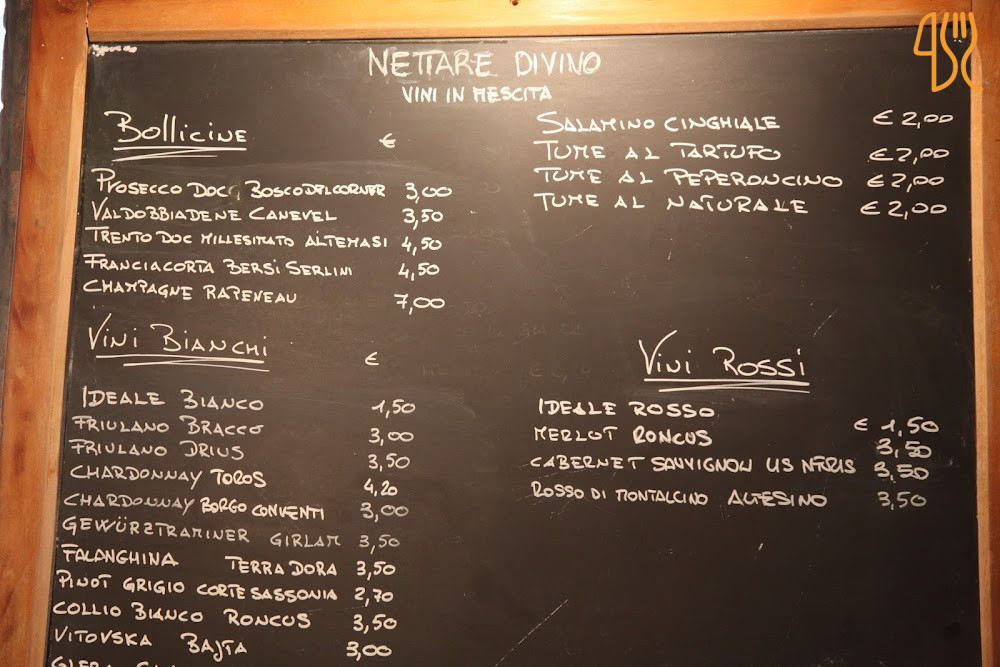 NETTARE DIVINO
VINI IN MESCITA
BOLLICINE €
PROSECCO DOC BOSCO DEL CORNER 3,00
VALDOBBIADENE CANEVEL 3,50
TRENTO DOC MILLESIMATO ALTEMASI 4,50
FRANCIACORTA BERSI SERLINI 4,50
CHAMPAGNE RAPENEAU 7,00
VINI BIANCHI €
IDEALE BIANCO 1,50
FRIULANO BRACCO 3,00
FRIULANO DRIUS 3,50
CHARDONNAY TOROS 4,20
CHARDONNAY BORGO CONVENTI 3,00
GEWÜRZTRAMINER GIRLAM 3,50
FALANGHINA TERRADORA 3,50
PINOT GRIGIO CORTE SASSONIA 2,70
COLLIO BIANCO RONCUS 3,50
VITOVSKA BAJTA 3,00
GLERA
SALAMINO CINGHIALE € 2,00
TUME AL TARTUFO € 2,00
TUME AL PEPERONCINO € 2,00
TUME AL NATURALE € 2,00
VINI ROSSI
IDEALE ROSSO € 1,50
MERLOT RONCUS 3,50
CABERNET SAUVIGNON LIS NERIS 3,50
ROSSO DI MONTALCINO ALTESINO 3,50